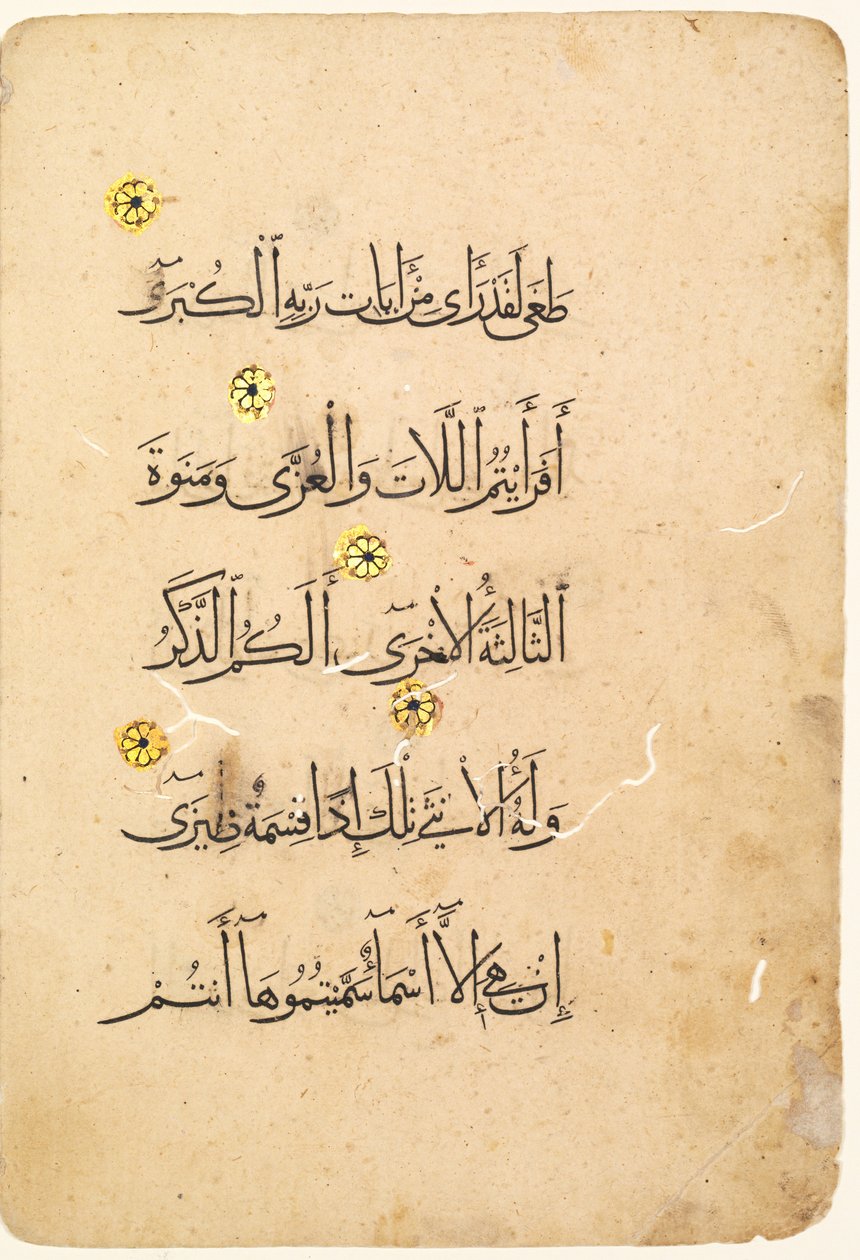 طَغَى لَقَدْ رَأَى مِنْ أَيَاتِ رَبِّهِ ٱلْكُبْرَى
أَفَرَأَيْتُمُ ٱللَّاتَ وَالْعُزَّى وَمَنَوةَ
ٱلثَّالِثَةَ ٱلْأُخْرَى أَلَكُمُ ٱلذَّكَرُ
وَلَهُ ٱلْأُنْثَى تِلْكَ إِذًا قِسْمَةٌ ضِيزَى
إِنْ هِيَ إِلَّا أَسْمَاءٌ سَمَّيْتُمُوُهَا أَنتُمْ